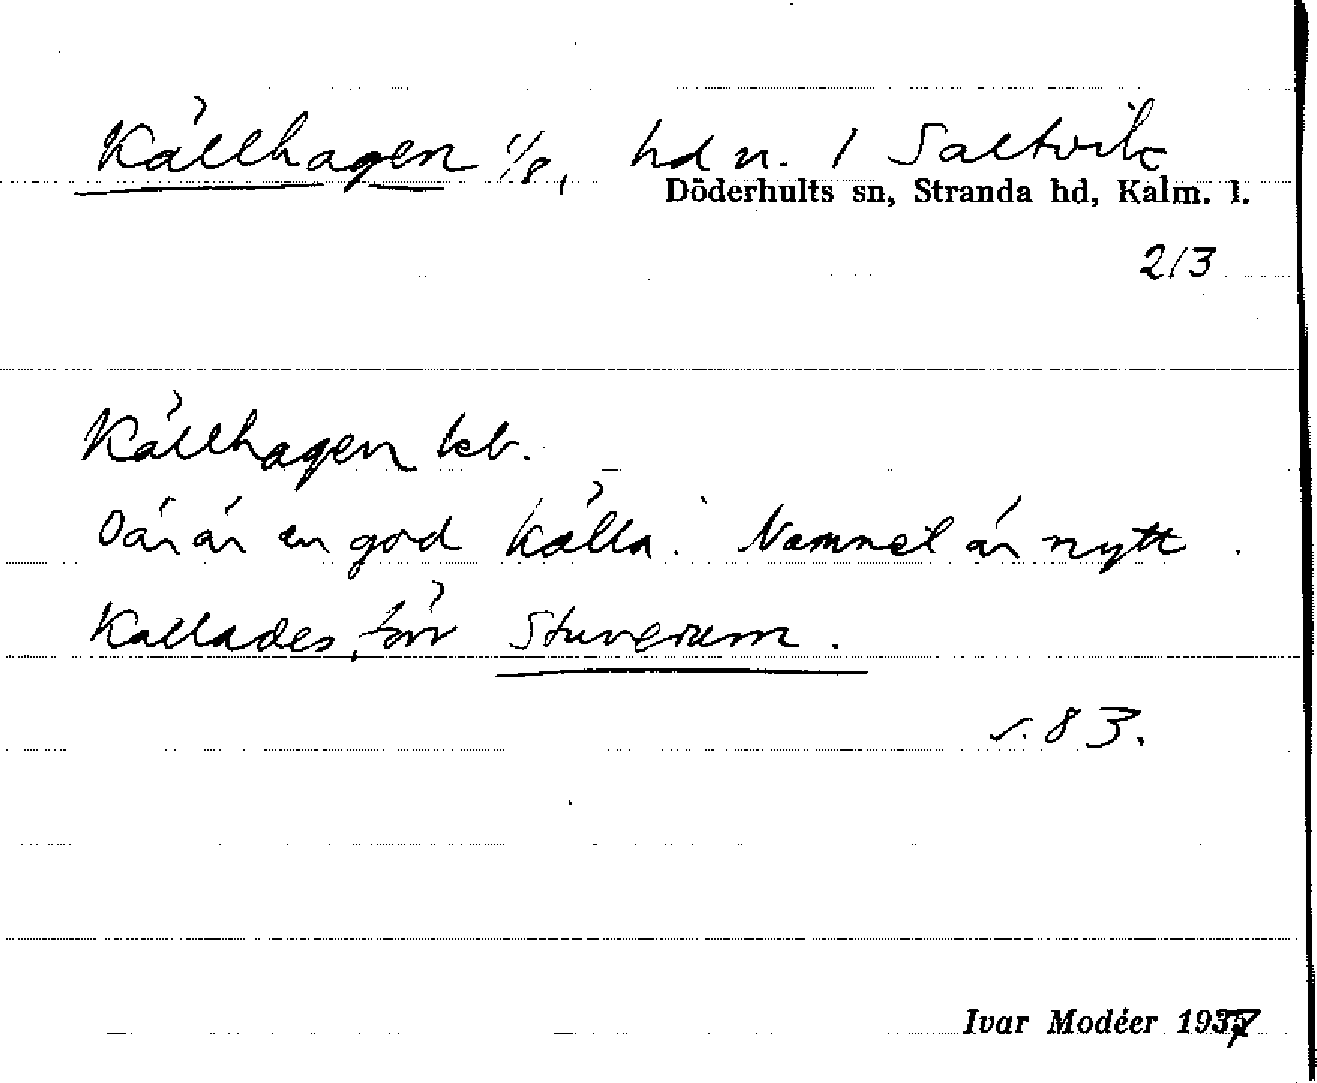 Källhagen 1/8, hd n. 1 Saltvik
Döderhults sn, Stranda hd, Kalm. l.
213
Källhagen kb.
Där är en god källa. Namnet är nytt.
Kallades förr Stuverum.
s. 83.
Ivar Modéer 1937